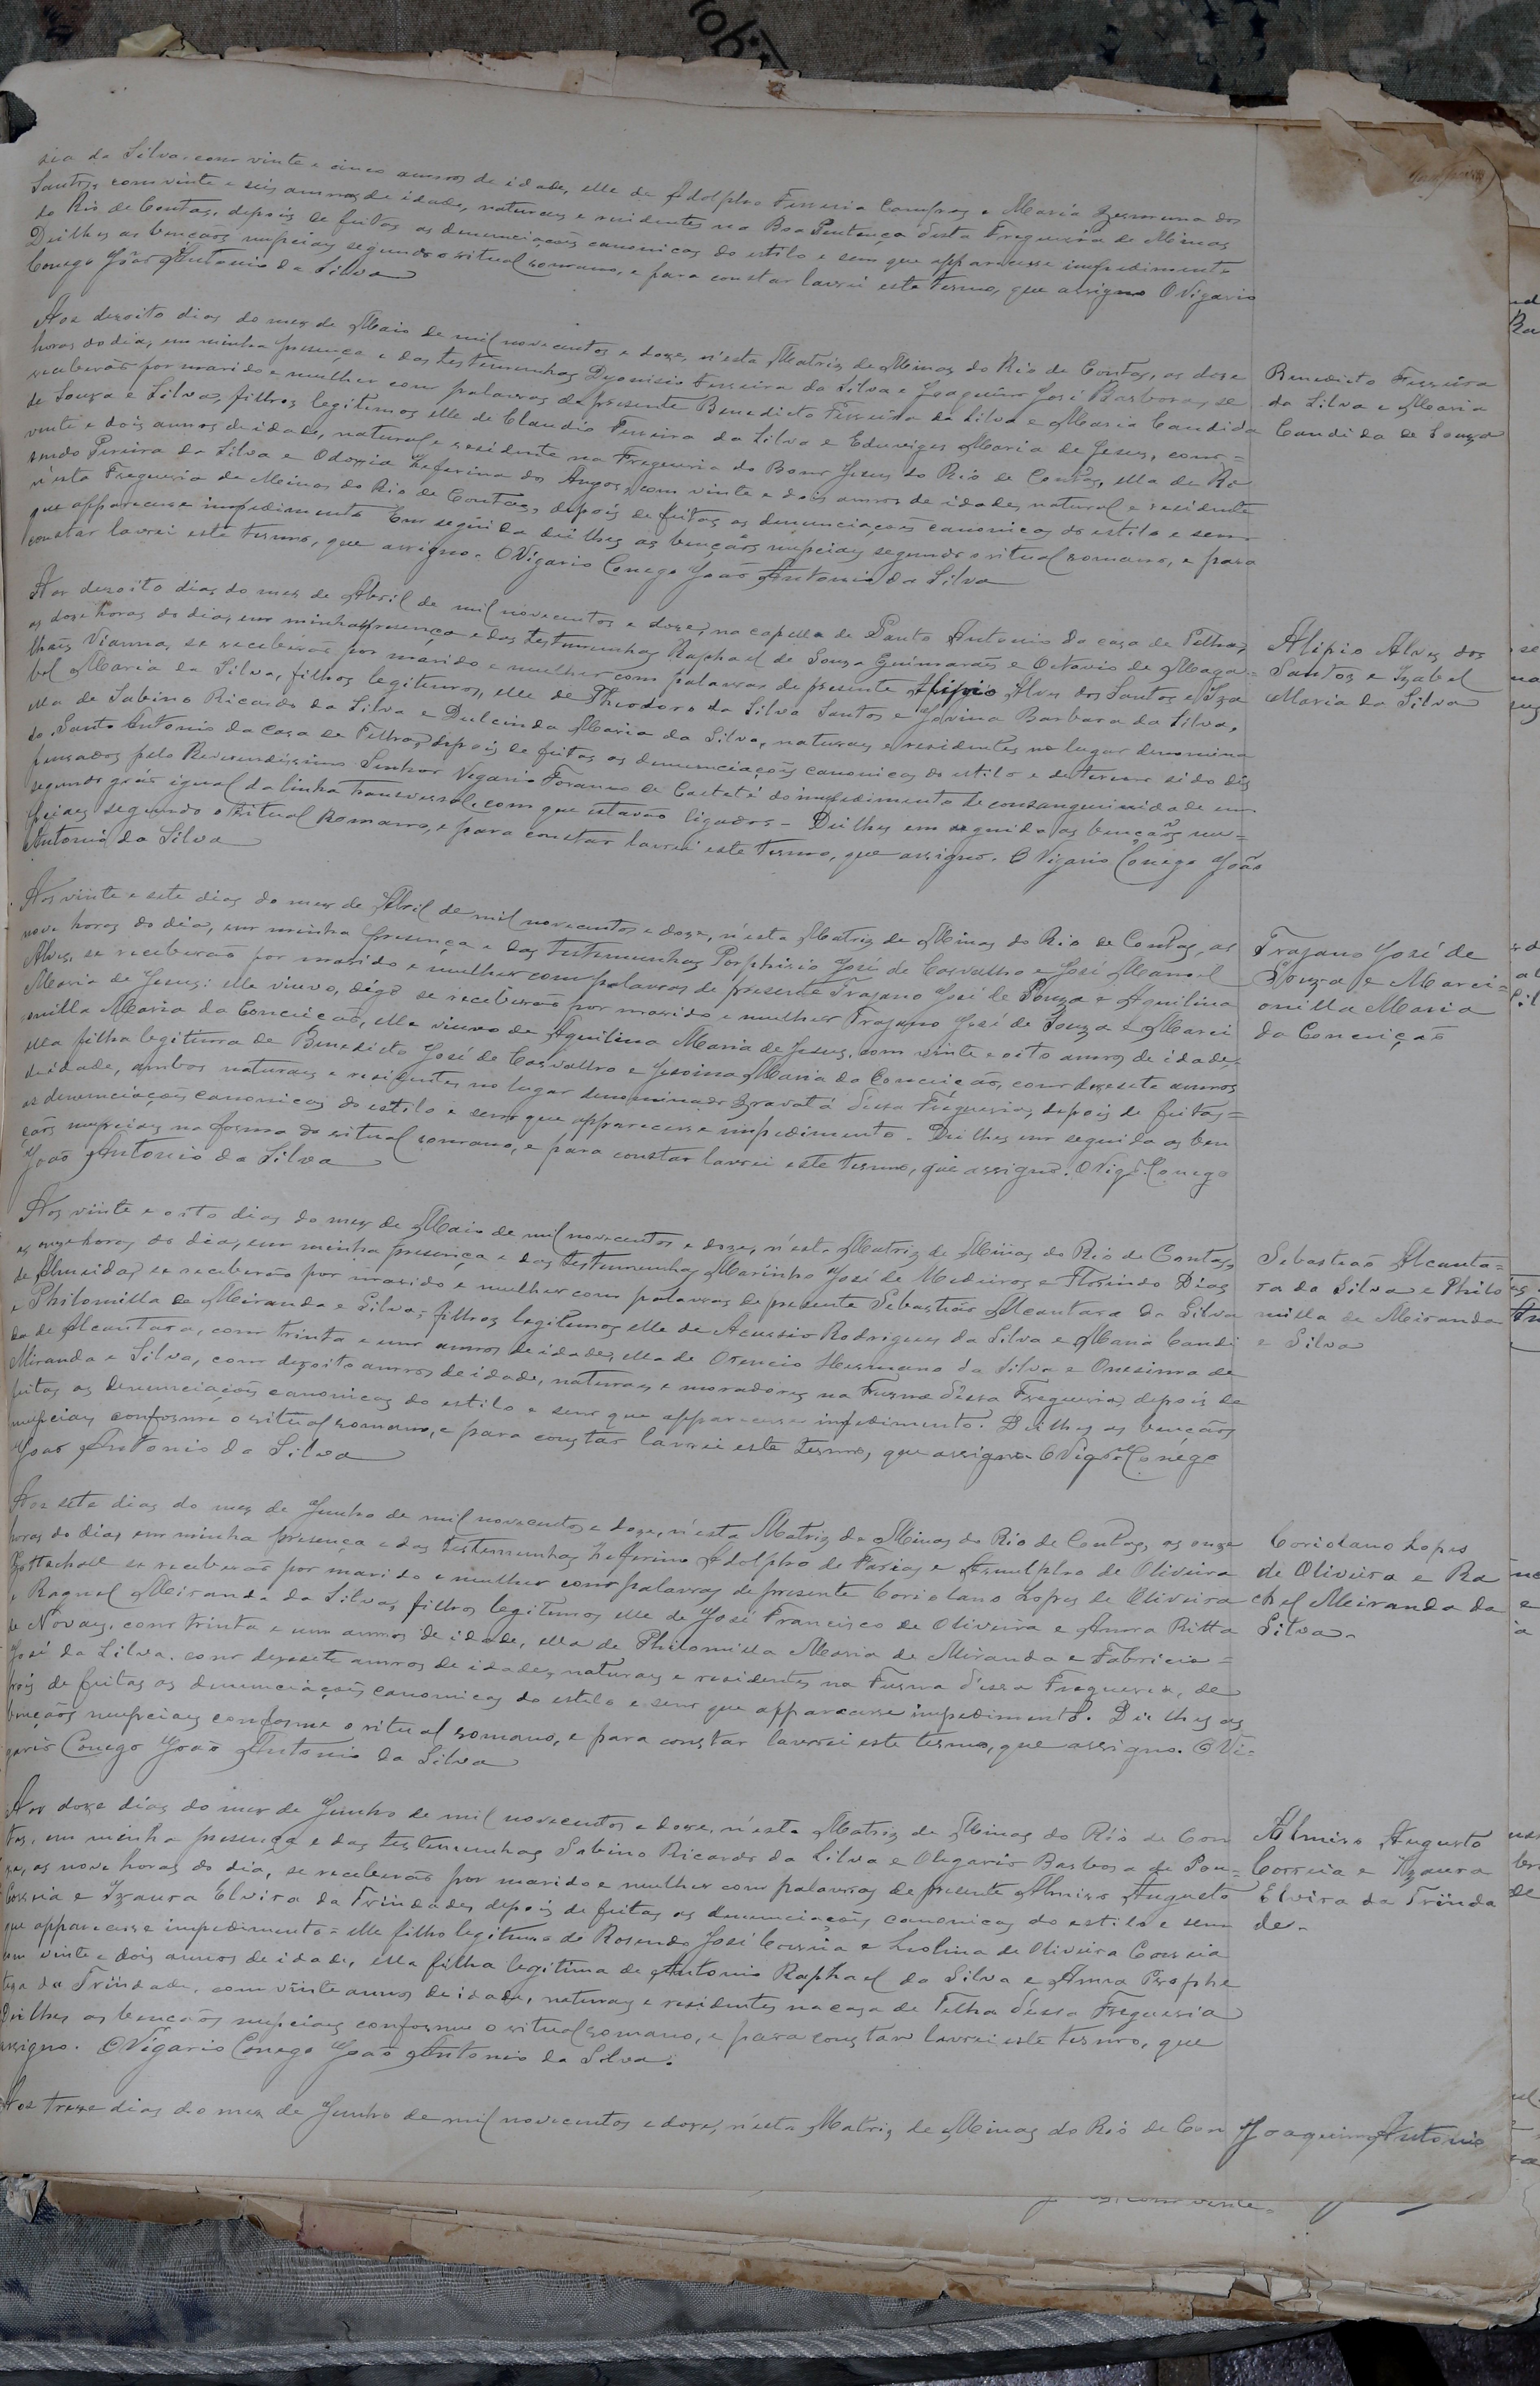 sia da Silva, com vinte e cinco annos de idade, elle de Adolpho Ferreira Campos e Maria dos
Santos, com vinte e seis annos de idade, naturaes e residentes na Boa Sentença desta Freguesia de Minas
do Rio de Contas, depois de feitas as denunciações canonicas do estilo e sem que apparecesse impedimento
Dei lhes as bençãos nupciaes segundo o ritual romano, e para constar lavrei este termo, que assigno O Vigario
Conego João Antonio da Silva
Aos dezoito dias do mez de Maio de mil novecentos e doze, n'esta Matriz de Minas do Rio de Contas, as doze
horas do dia, em minha presença e das testemunhas Dyonisio Ferreira da Silva e Joaquim José Barbora, se
receberão por marido e mulher com palavras de presente Benedicto Ferreira da Silva e Maria Candida
de Souza e Silva, filhos legitimos elle de Claudio Ferreira da Silva e Eduviges Maria de Jesus, com =
vinte e dois annos de idade, natural e residente na Freguesia do Bom Jesus do Rio de Contas, ella de Ro
sendo Pereira da Silva e Odorria Zeferina dos Anjos, com vinte e dois annos de idade, natural e residente
n'esta Freguesia de Minas do Rio de Contas, depois de feitas as denunciações canonicas do estilo e sem
que apparecesse impedimento Em seguida dei lhes as bençãos nupciaes segundo o ritual romano, e para
constar lavrei este termo, que assigno. O Vigario Conego João Antonio da Silva
Benedicto Ferreira
da Silva e Maria
Candida de Souza
Aos dezoito dias do mez de Abril de mil novecentos e doze, na capella de Santo Antonio da casa de Telhas,
as doze horas do dia, em minha presença e das testemunhas Raphael de Souza Guimarães e Octavio de Maga =
lhais Vianna, se receberão por marido e mulher com palavras de presente Alipio Alves dos Santos e Iza
bel Maria da Silva, filhos legitimos, elle de Theodoro da Silva Santos e Jovina Barbara da Silva,
ella de Sabino Ricardo da Silva e Dulcinda Maria da Silva, naturaes e residentes no lugar denomina
do Santo Antonio da Casa de Telhas, depois de feitas as denunciações canonicas do estilo e de terem sido dis
pensados pelo Reverendissimo Senhor Vegario Foraneo de Caeteté do impedimento de consanguinidade em
segundo gráo igual da linha transversal, com que estavão ligados - Dei lhes em seguida as bençãos nu =
pciaes segundo o Ritual Romano, e para constar lavrei este termo, que assigno. O Vigario Conego João
Antonio da Silva
Alipio Alves dos
Santos e Izabel
Maria da Silva
Aos vinte e sete dias do mez de Abril de mil novecentos e doze, n'esta Matriz de Minas do Rio de Contas, as
nove horas do dia, em minha presença e das testemunhas Porphirio José de Carvalho e José Manoel
Alves, se receberão por marido e mulher com palavras de presente Trajano José de Souza e Aquilina
Maria de Jesus: elle viuvo, digo se receberão por marido e mulher Trajano José de Souza e Marci
onilla Maria da Conceição, elle viuvo de Aquilina Maria de Jesus, com vinte e oito annos de idade,
ella filha legitima de Benedicto José de Carvalho e Jesoina Maria da Conceição, com dezesete annos
de idade, ambos naturaes e residentes no lugar denominado Gravatá dessa Freguesia, depois de feitas =
as denunciações canonicas do estilo e sem que apparecesse impedimento. Dei lhes em seguida as ben
çãos nupciaes na forma do ritual romano, e para constar lavrei este termo, que assigno. O Vigº Conego
João Antonio da Silva
Trajano José de
Souza e Marci =
onilla Maria
da Conceição
Aos vinte e oito dias do mez de Maio de mil novecentos e doze, n'esta Matriz de Minas do Rio de Contas,
as onze horas do dia, em minha presença e das testemunhas Marinho José de Medeiros e Florindo Dias
de Almeida, se receberão por marido e mulher com palavras de presente Sebastião Alcantara da Silva
e Philomilla de Miranda e Silva, filhos legitimos elle de Acursio Rodrigues da Silva e Maria Candi
da de Alcantara, com trinta e um annos de idade, ella de Orencio Hermano da Silva e Onesima de
Miranda e Silva, com dezoito annos de idade, naturaes e moradores na Furna dessa Freguesia, depois de
feitas as denunciações canonicas do estilo e sem que apparecesse impedimento. Dei lhes as bençãos
nupciaes conforme o ritual romano, e para constar lavrei este termo, que assigno O Vigº Conego
João Antonio da Silva
Sebastião Alcanta =
ra da Silva e Philo
milla de Miranda
e Silva
Aos sete dias do mez de Junho de mil novecentos e doze, n'esta Matriz de Minas do Rio de Contas, as onze
horas do dia, em minha presença e das testemunhas Zefferino Adolpho de Farias e de Oliveira
se receberão por marido e mulher com palavras de presente Coriolano Lopes de Oliveira
e Raquel Miranda da Silva, filhos legitimos elle de José Francisco de Oliveira e Anna Ritta
de Novaes, com trinta e um annos de idade, ella de Philomilla Maria de Miranda e Fabricio =
José da Silva, com dezesete annos de idade, naturaes e residentes na Furna dessa Freguesia, de
pois de feitas as denunciações canonicas do estilo e sem que apparecesse impedimento. Dei lhes as
bençãos nupciaes conforme o ritual romano, e para constar lavrei este termo, que assigno. O Vi =
gario Conego João Antonio da Silva
Coriolano Lopes
de Oliveira e Ra
chel Meiranda da
Silva.
Aos doze dias do mez de Junho de mil novecentos e doze, n'esta Matriz de Minas do Rio de Con
tas, em minha presença e das testemunhas Sabino Ricardo da Silva e Olegario Barbosa de Sou =
za, as nove horas do dia, se receberão por marido e mulher com palavras de presente Almiro Augusto
Correia e Izaura Elvira da Trindade, depois de feitas as denunciações canonicas do estilo e sem
que apparecesse impedimento = elle filho legitimo de Rosendo José Correia e Leolina de Oliveira Correia
com vinte e dois annos de idade, ella filha legitima de Antonio Raphael da Silva e Anna Prophe
tisa da Trindade, com vinte annos de idade, naturaes e residentes na casa de Telha dessa Freguesia
Dei lhes as bençãos nupciaes conforme o ritual romano, e para constar lavrei este termo, que
assigno. O Vigario Conego João Antonio da Silva.
Almiro Augusto
Correia e Izaura
Elvira da Trinda
de.
Aos treze dias do mez de Junho de mil novecentos e doze, n'esta Matriz de Minas do Rio de Con
Joaquim Antonio